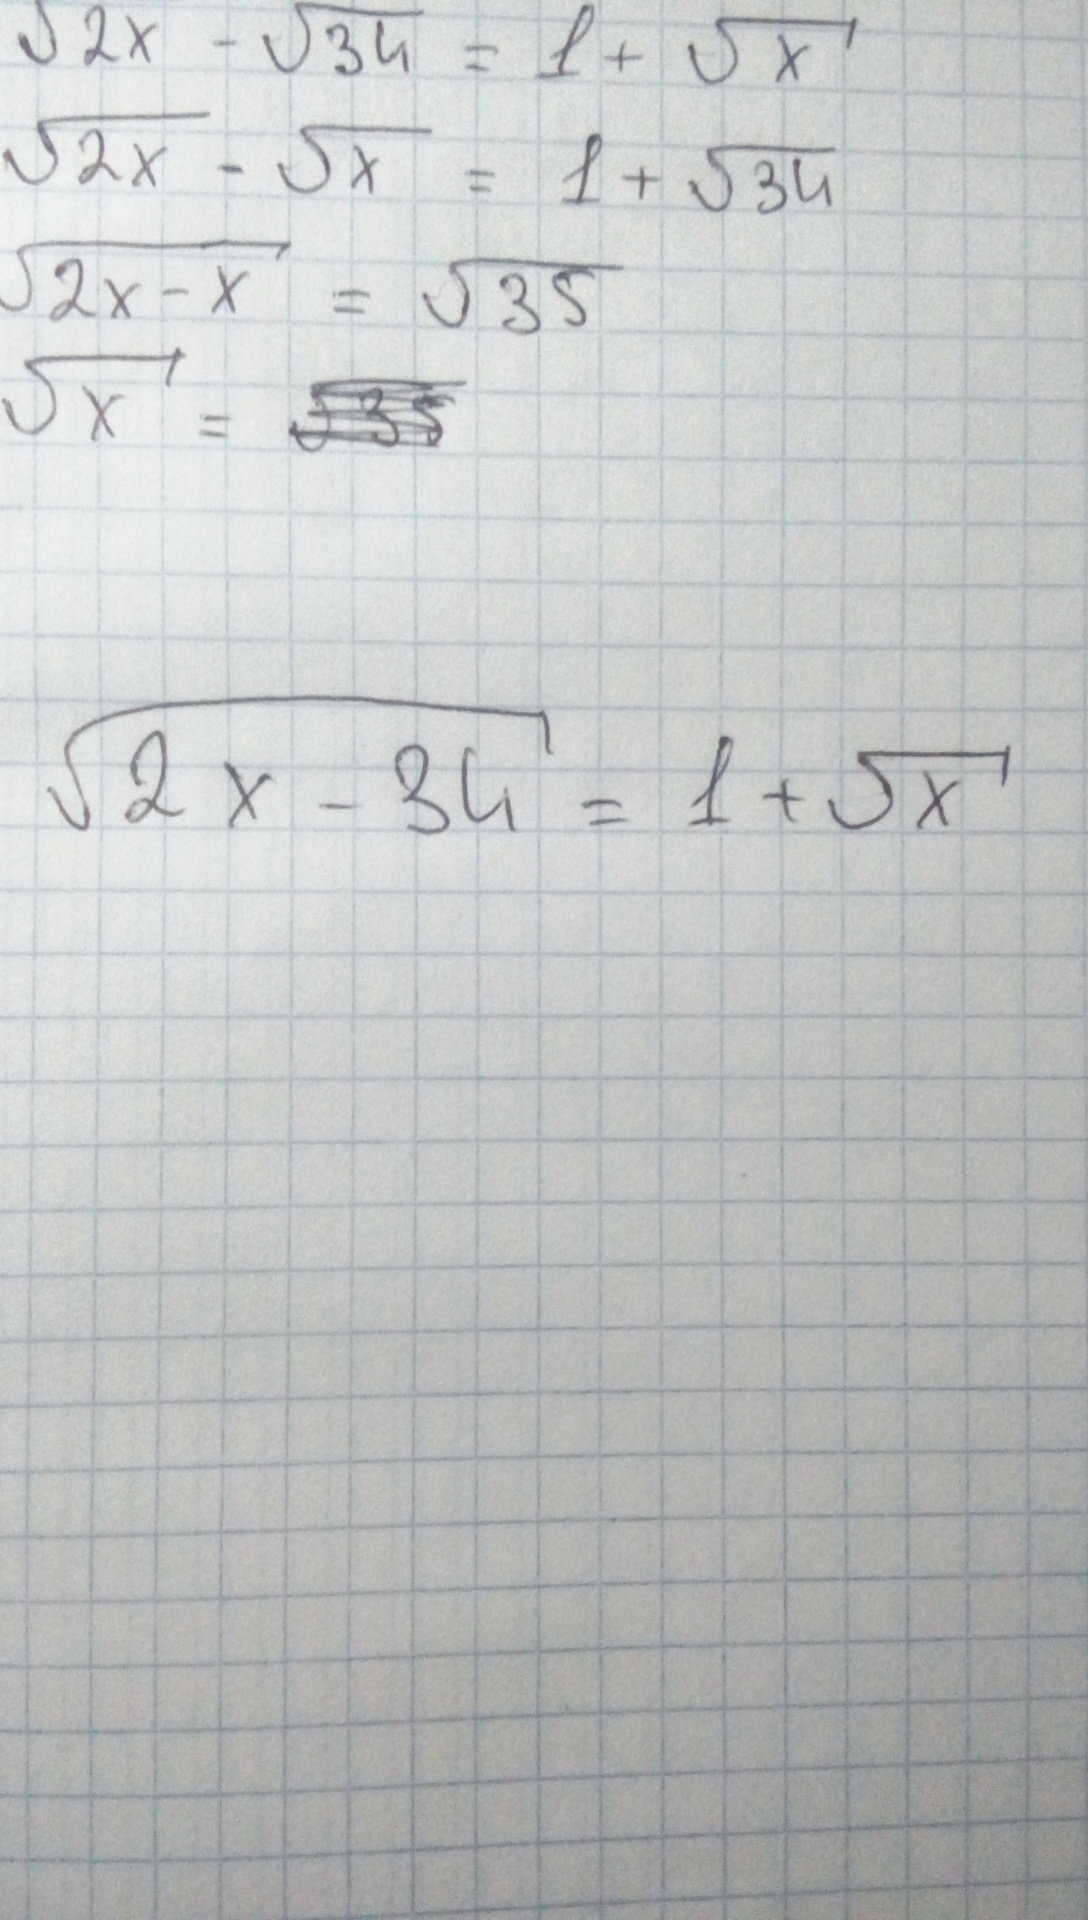 √2x - √34 = 1 + √x
√2x - √x = 1 + √34
√2x - x = √35
√x =
√2x - 34 = 1 + √x